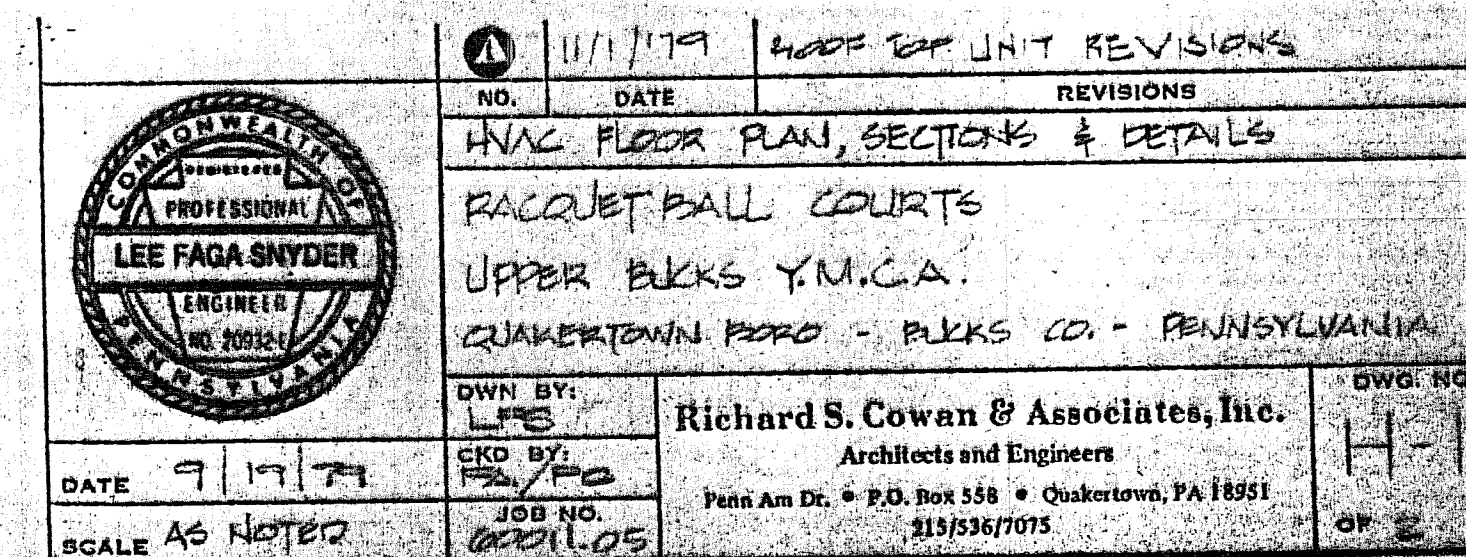 1 11/1/79 ROOF TOP UNIT REVISIONS
NO. DATE REVISIONS
HVAC FLOOR PLAN, SECTIONS & DETAILS
RACQUET BALL COURTS
UPPER BUCKS Y.M.C.A.
QUAKERTOWN BORO - BUCKS CO. - PENNSYLVANIA
COMMONWEALTH OF
REGISTERED
PROFESSIONAL
LEE FAGA SNYDER
ENGINEER
NO. 20932-E
PENNSYLVANIA
DATE 9/19/79
SCALE AS NOTED
DWN BY:
LFS
CKD BY:
JOB NO.
60011.05
Richard S. Cowan & Associates, Inc.
Architects and Engineers
Penn Am Dr. • P.O. Box 558 • Quakertown, PA 18951
215/536/7075
DWG. NO
H-1
OF 2